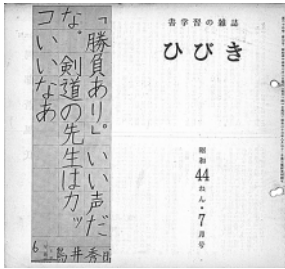 書学習の雑誌
ひびき
昭和44ねん・7月号
「勝負あり」。いい声だ
な。剣道の先生はカッ
コいいなあ
6